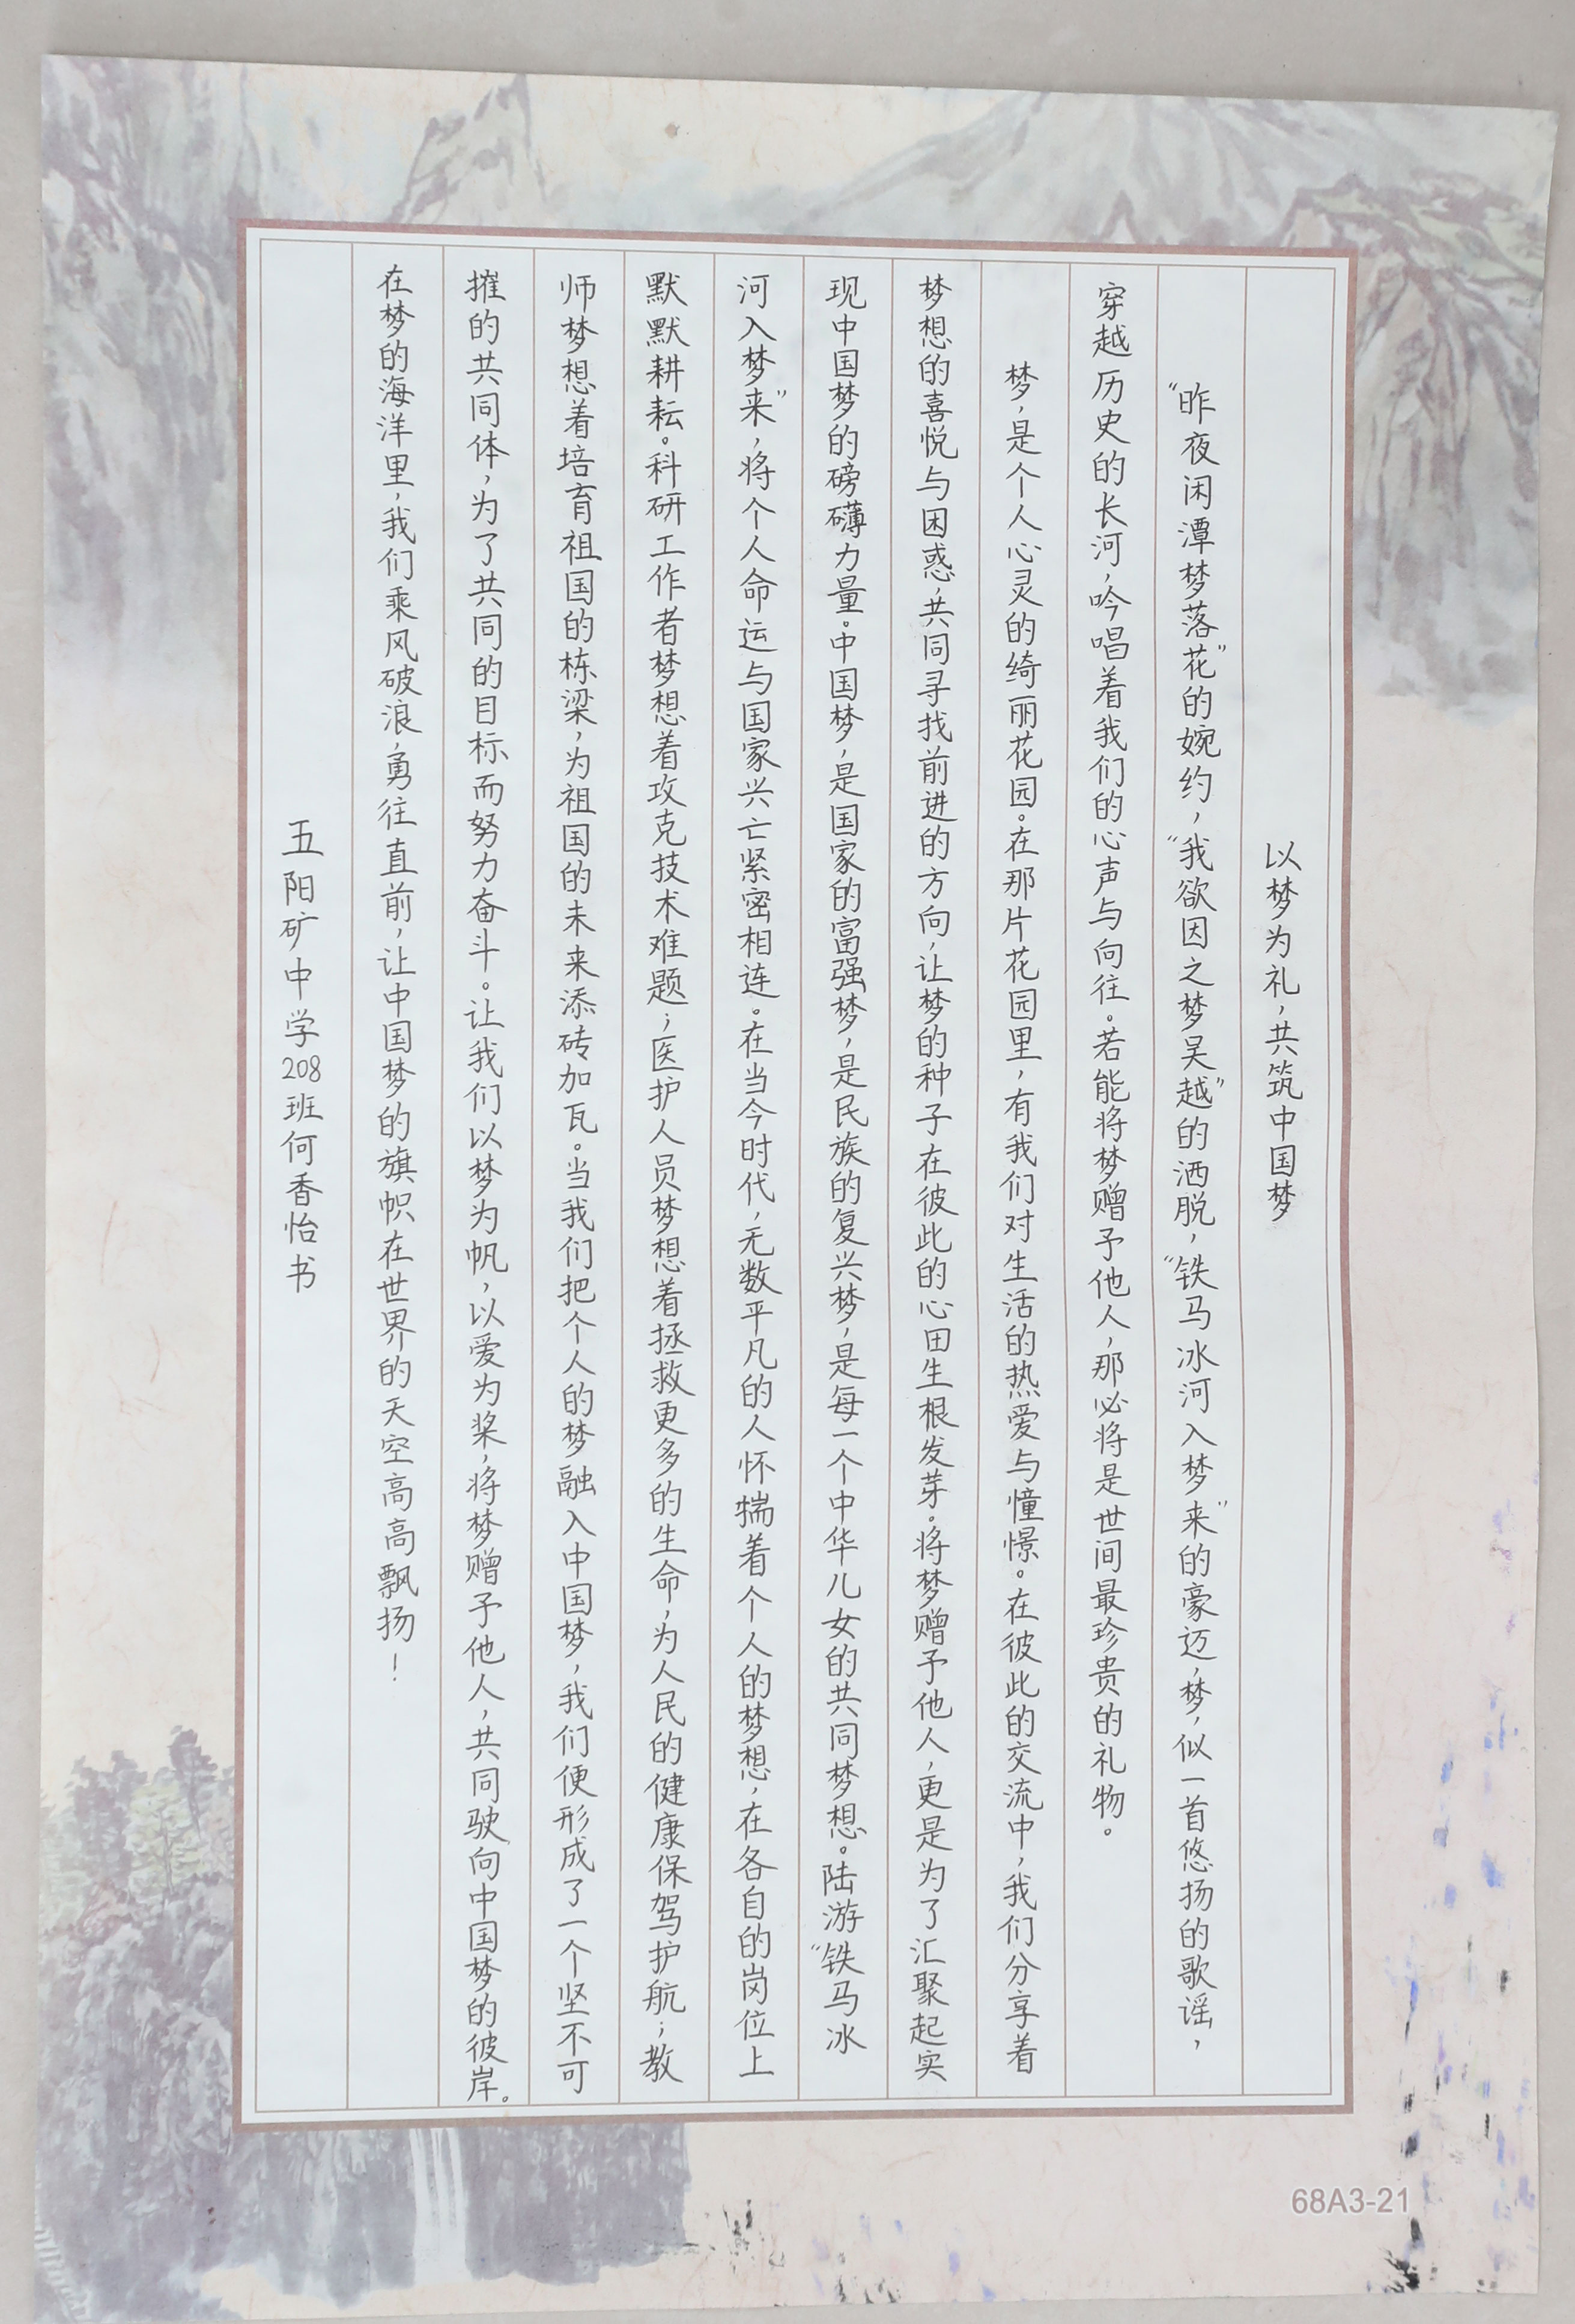 以梦为礼，共筑中国梦
“昨夜闲潭梦落花”的婉约，“我欲因之梦吴越”的洒脱，“铁马冰河入梦来”的豪迈，梦，似一首悠扬的歌谣，
穿越历史的长河，吟唱着我们的心声与向往。若能将梦赠予他人，那必将是世间最珍贵的礼物。
梦，是个人心灵的绮丽花园。在那片花园里，有我们对生活的热爱与憧憬。在彼此的交流中，我们分享着
梦想的喜悦与困惑，共同寻找前进的方向，让梦的种子在彼此的心田生根发芽。将梦赠予他人，更是为了汇聚起实
现中国梦的磅礴力量。中国梦，是国家的富强梦，是民族的复兴梦，是每一个中华儿女的共同梦想。陆游“铁马冰
河入梦来”，将个人命运与国家兴亡紧密相连。在当今时代，无数平凡的人怀揣着个人的梦想，在各自的岗位上
默默耕耘。科研工作者梦想着攻克技术难题；医护人员梦想着拯救更多的生命，为人民的健康保驾护航；教
师梦想着培育祖国的栋梁，为祖国的未来添砖加瓦。当我们把个人的梦融入中国梦，我们便形成了一个坚不可
摧的共同体，为了共同的目标而努力奋斗。让我们以梦为帆，以爱为桨，将梦赠予他人，共同驶向中国梦的彼岸。
在梦的海洋里，我们乘风破浪，勇往直前，让中国梦的旗帜在世界的天空高高飘扬！
五阳矿中学208班何香怡书
68A3-21